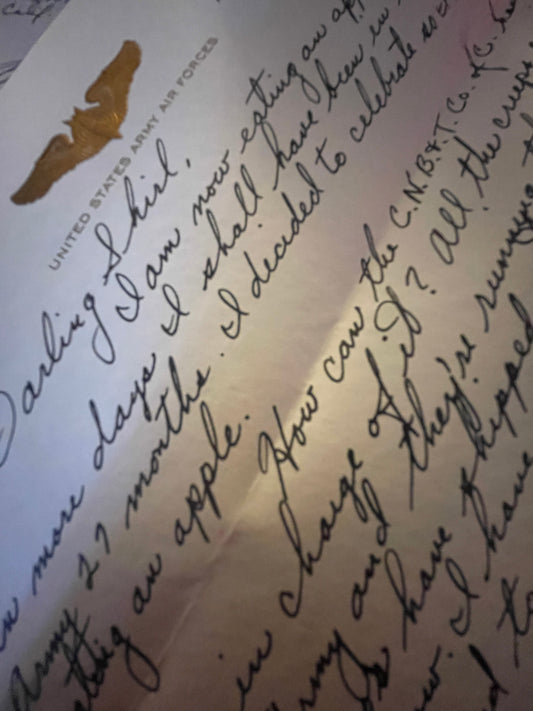 Calif.
UNITED STATES ARMY AIR FORCES
Darling Shirl,
I am now eating an
more days I shall have been in
Army 27 months. I decided to celebrate
eating an apple.
How can the C.N.B.&T. Co. of C.
in charge of it? All the creeps
and they're running
have
I have
to